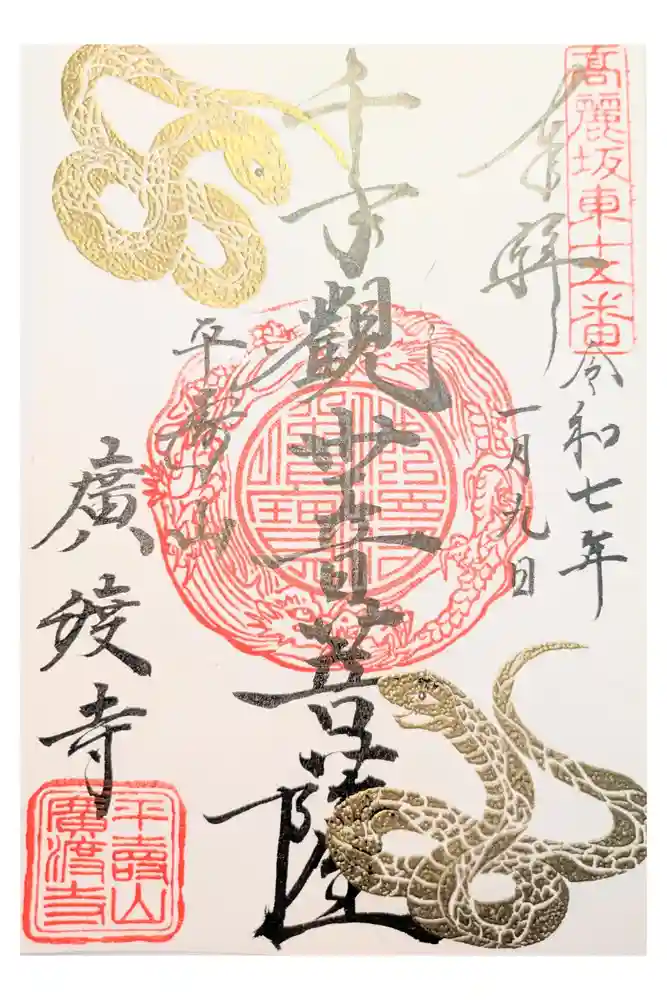 高麗坂東
奉拝
令和七年
一月九日
千手觀世音菩薩
平寿山
廣渡寺
平壽山
廣渡寺